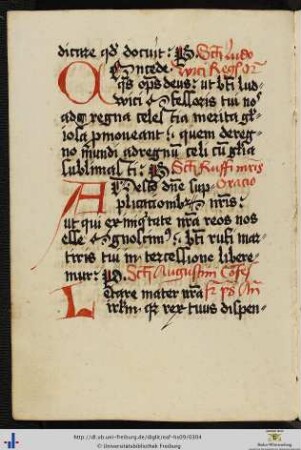 dicare qd' docuit: P Scti Ludo
Oncede wici Regis Or
qs ops deus: ut bti lud
wici Cfessoris tui nos
ad regna celestia merita gl
iosa pmoueant: quem de reg
no mundi ad regnum celi cu gla
sublimasti: P Scti Ruffi mris
Adesto dne sup Oracio
plicationib nris:
ut qui ex iniqitate nra reos nos
esse cgnoscim: bti rufi mar
tiris tui intercessione libere
mur: P Scti Augustini Cofes
Letare mater nra
irlm: qz rex tuus dispen
http://dl.ub.uni-freiburg.de/diglit/
© Universitätsbibliothek Freiburg